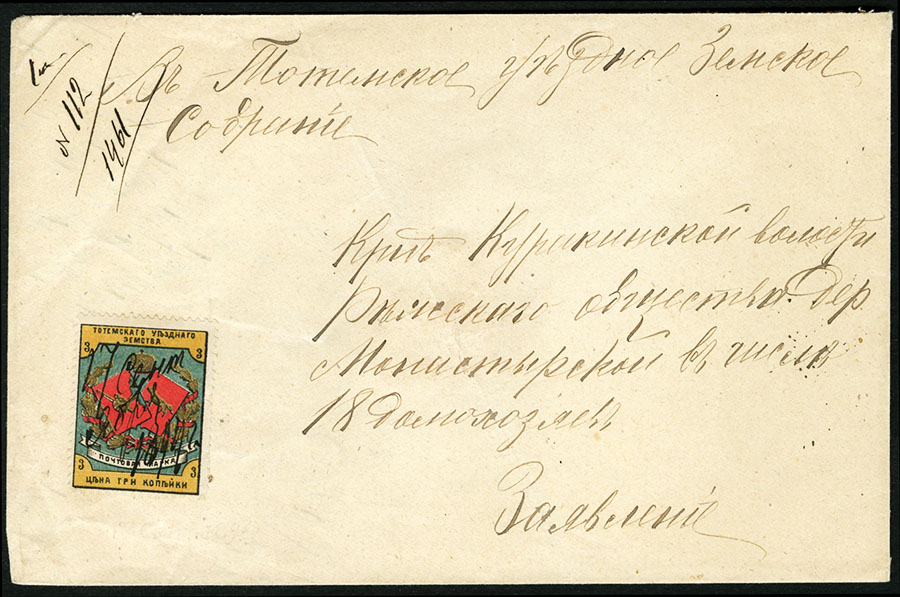 № 112
1461
Въ Тотемское уѣздное Земское
Собрание
Крнъ Куракинской волости
общества дер
Монастырской въ числѣ
18 домохозяевъ
Заявление
ТОТЕМСКАГО УѢЗДНАГО
ЗЕМСТВА
3 3
17
ПОЧТОВАЯ МАРКА
3 3
ЦѢНА ТРИ КОПѢЙКИ